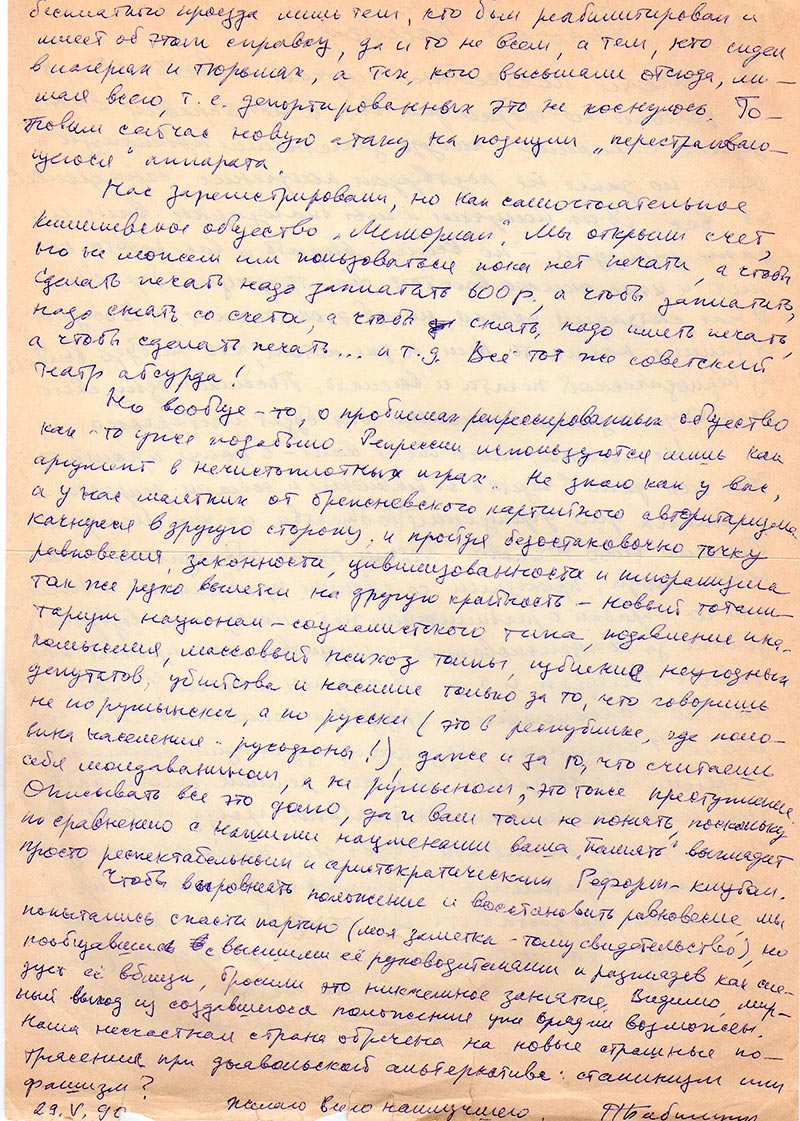 бесплатного проезда лишь тем, кто был реабилитирован и
имеет об этом справку, да и то не всем, а тем, кто сидел
в лагерях и тюрьмах, а тех, кого высылали отсюда, ли-
шая всего, т.е. депортированных это не коснулось. Го-
товим сейчас новую атаку на позиции „перестраиваю-
щегося" аппарата.
Нас зарегистрировали, но как самостоятельное
кишиневское общество „Мемориал". Мы открыли счет,
но не можем им пользоваться пока нет печати, а чтобы
сделать печать надо заплатить 600 р., а чтобы заплатить,
надо снять со счета, а чтобы снять, надо иметь печать,
а чтобы сделать печать... и т.д. Всё тот же советский
театр абсурда!
Но вообще-то, о проблемах репрессированных общество
как-то уже подзабыло. Репрессии используются лишь как
аргумент в нечистоплотных играх. Не знаю как у вас,
а у нас маятник от брежневского партийного авторитаризма
качнулся в другую сторону, и пройдя безостановочно точку
равновесия, законности, цивилизованности и плюрализма
так же резко вылетел на другую крайность – новый тотали-
таризм национал-социалистского типа, подавление ина-
комыслия, массовый психоз толпы, избиение неугодных
депутатов, убийства и насилие только за то, что говоришь
не по румынски, а по русски (это в республике, где поло-
вина населения – русофоны!) даже и за то, что считаешь
себя молдаванином, а не румыном, – это тоже преступление.
Описывать все это долго, да и вам там не понять, поскольку
по сравнению с нашими нацменами ваша „Память" выглядит
просто респектабельным и аристократическим Реформ-клубом.
Чтобы выровнять положение и восстановить равновесие, мы
попытались спасти партию (моя заметка – тому свидетельство), но
пообщавшись с высшими её руководителями и разглядев как сле-
дует её вблизи, бросили это никчемное занятие. Видимо, мир-
ный выход из создавшегося положения уже вряд ли возможен.
Наша несчастная страна обречена на новые страшные по-
трясения при дьявольской альтернативе: сталинизм или
фашизм?
29.V.90 Желаю Всего наилучшего.